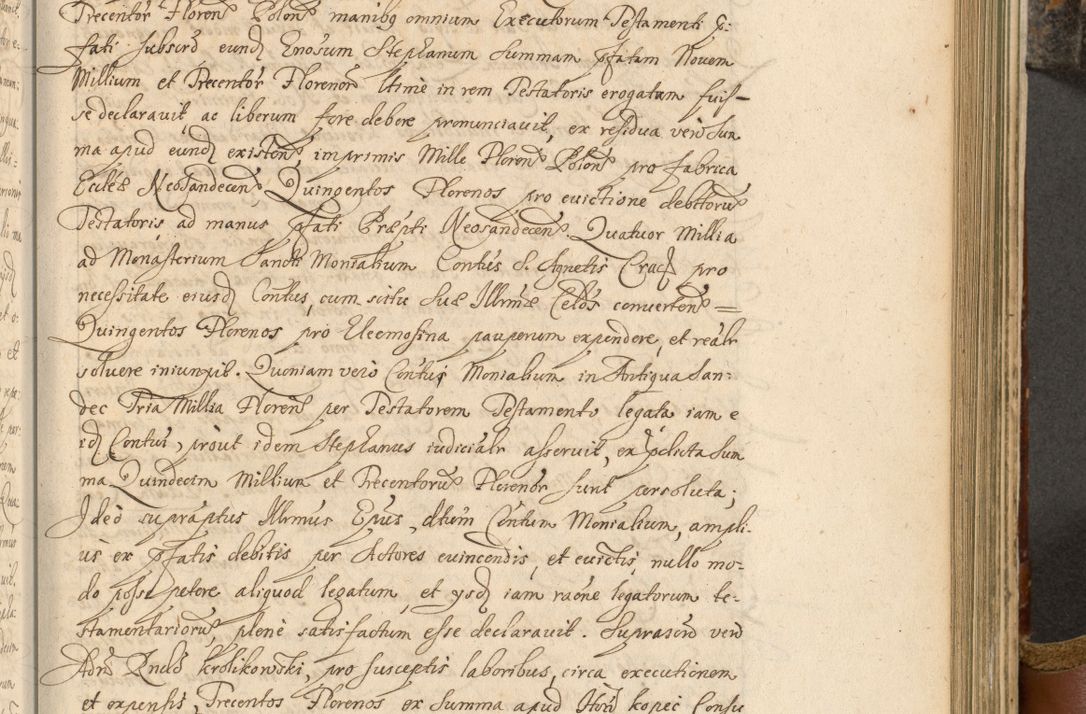 Trecentor Floren Polon manibq omnium Executorum Testamenti p:
fati subscrd eund Enosum Stephanum Summam pfatam Novem
Millium et Trecentor Florenor Utime in rem Testatoris erogatam fuis-
se declaravit, ac liberum fore debere pronunciavit, ex residua vero Sum
ma apud eund existen, imprimis Mille Floren Polon pro fabrica
Eccleæ Neosandecen Quingentos Florenos pro evictione debitoru
Testatoris ad manus pfati Præpti Neosandecen. Quatuor Millia
ad Monasterium Sancti Monialium Contus S. Agnetis Crac pro
necessitate eiusd Contus, cum scitu Suæ Illrmæ Celsis converten =
Quingentos Florenos pro Eleemosina pauperum expendere, et realr
solvere iniunxit. Quoniam vero Contui Monialium in Antiqua San:
dec Tria Millia Floren per Testatorem Testamento legata iam e
id Contui, prout idem Stephanus iudicialr asseruit, ex pdicta Sum
ma Quindecim Millium et Trecentoru Florenor sunt persoluta;
Ideo supraptus Illrmus Epus, dtum Contum Monialium, ampli:
us ex pfatis debitis per Actores evincendis, et evictis, nullo mo:
do posse petere aliquod legatum, et ysd iam raone legatorum te:
stamentarioru, plene satisfactum esse declaravit. Suprascrd vero
Adrd Krolikowski, pro susceptis laboribus, circa executionem
et expensis, Trecentos Florenos ex Summa apud kopec Consu